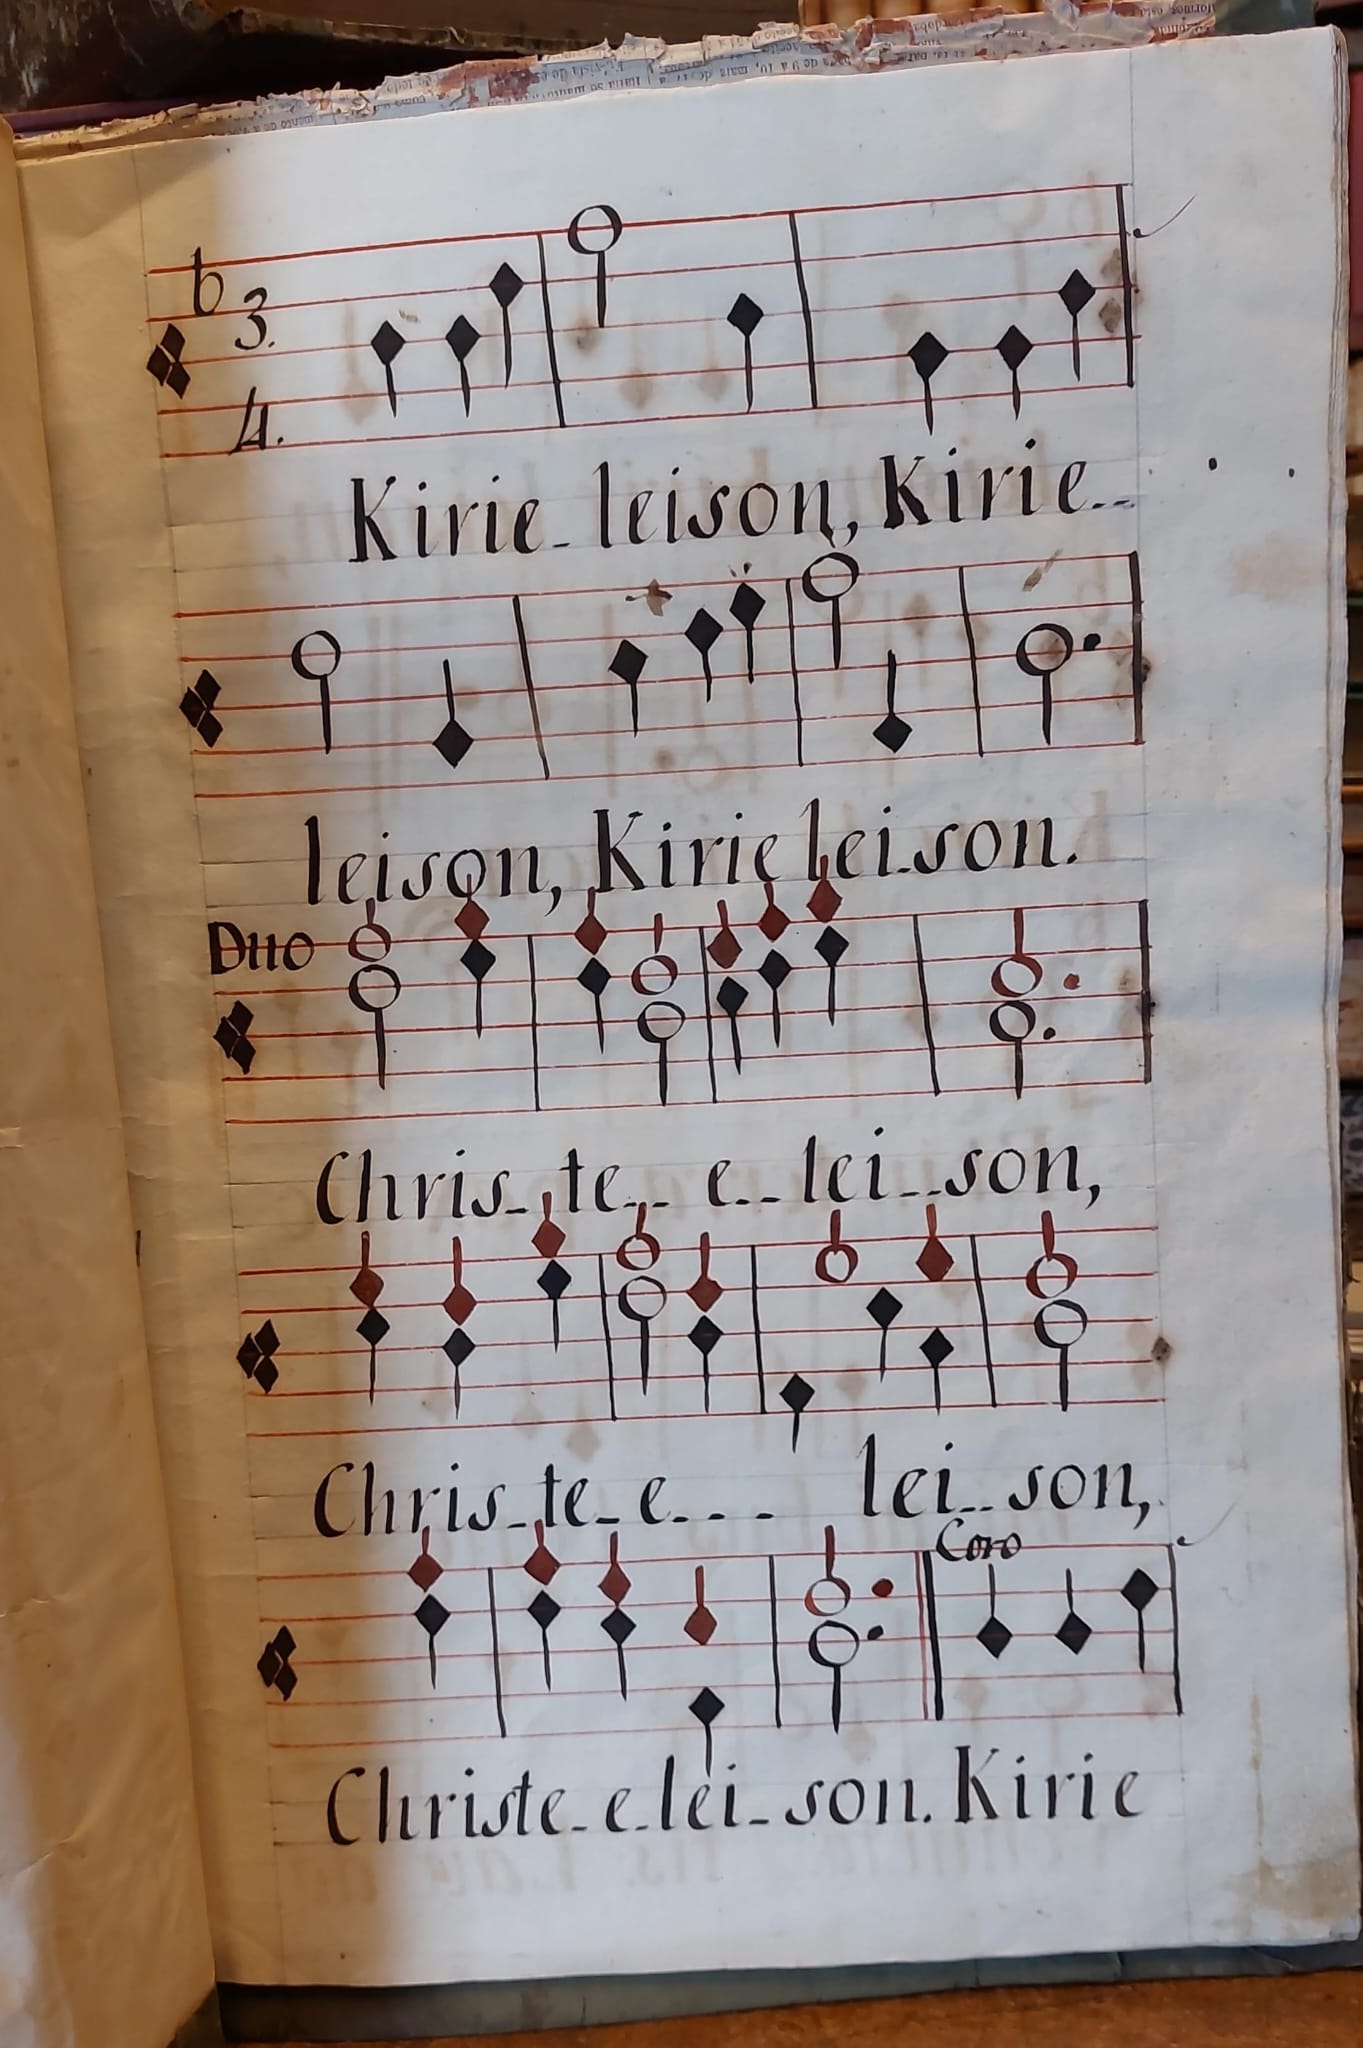 b 3.
4.
Kirie_ leison, Kirie..
leison, Kirie lei.son.
Duo
Chris_ te_ _ e_ _ lei_ _son,
Chris_te_ e_ _ _ lei_ _ son,
Coro
Christe_ e_lei_ son. Kirie